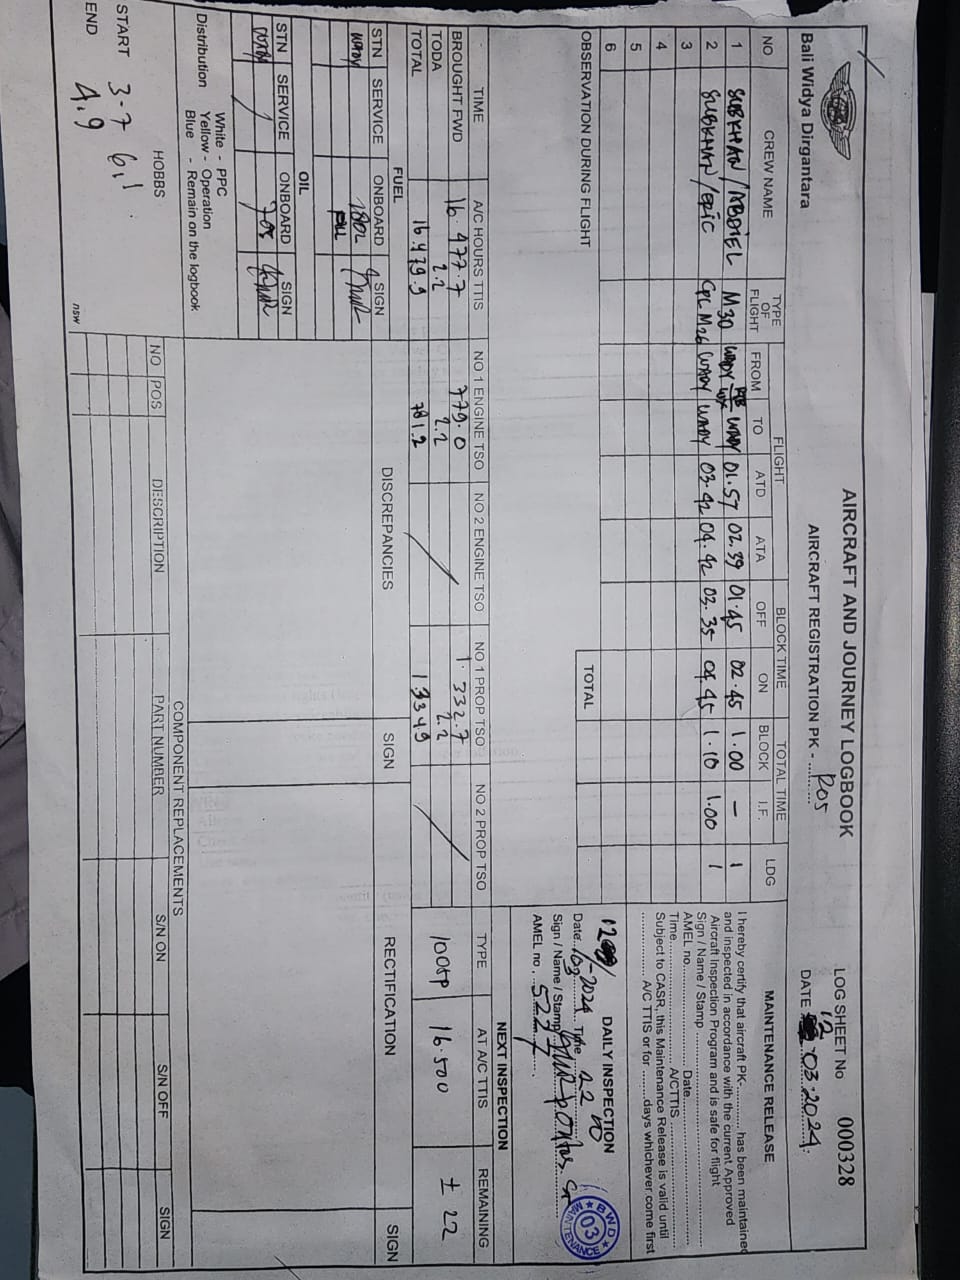 Bali Widya Dirgantara
AIRCRAFT AND JOURNEY LOGBOOK
AIRCRAFT REGISTRATION PK - ROS
LOG SHEET No 000328
DATE 12.03.2024.
NO CREW NAME TYPE OF FLIGHT FLIGHT BLOCK TIME TOTAL TIME LDG
FROM TO ATD ATA OFF ON BLOCK I.F.
1 SUBKHAN / ABDIEL M30 WADY WADY 01.57 02.39 01.45 02.45 1.00 - 1
2 SUBKHAN / EPIC M26 WADY WADY 03.42 04.42 03.35 04.45 1.10 1.00 1
3
4
5
6
TOTAL
OBSERVATION DURING FLIGHT
MAINTENANCE RELEASE
I hereby certify that aircraft PK-............ has been maintained
and inspected in accordance with the current Approved
Aircraft Inspection Program and is safe for flight
Sign / Name / Stamp
AMEL no. Date
Time A/CTTIS
Subject to CASR, this Maintenance Release is valid until
A/C TTIS or for ........days whichever come first
DAILY INSPECTION
Date 03-2024 Time 22
Sign / Name / Stamp
AMEL no. 5277
BWD
03
MAINTENANCE
TIME A/C HOURS TTIS NO 1 ENGINE TSO NO 2 ENGINE TSO NO 1 PROP TSO NO 2 PROP TSO
BROUGHT FWD 16.477.7 779.0 1.332.7
TODA 2.2 2.2 2.2
TOTAL 16.479.9 781.2 1334.9
NEXT INSPECTION
TYPE AT A/C TTIS REMAINING
100HP 16.500 ± 22
FUEL
STN SERVICE ONBOARD SIGN
WADY 180L
FULL
OIL
STN SERVICE ONBOARD SIGN
WADY 7QS
DISCREPANCIES SIGN RECTIFICATION SIGN
Distribution White - PPC
Yellow - Operation
Blue - Remain on the logbook
HOBBS
START 3.7 6.1
END 4.9
nsw
COMPONENT REPLACEMENTS
NO POS DESCRIPTION PART NUMBER S/N ON S/N OFF SIGN